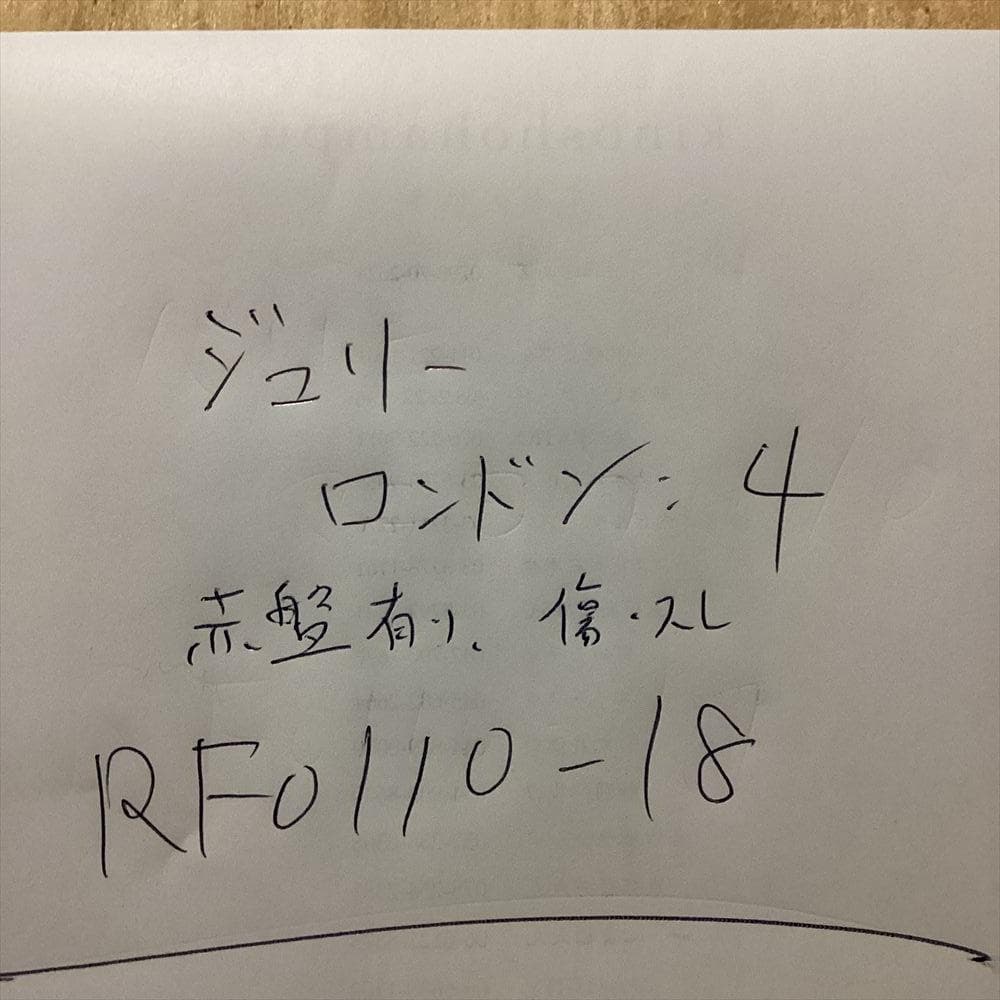 ジュリー
ロンドン：4
赤盤有り、傷・スレ
RF0110-18